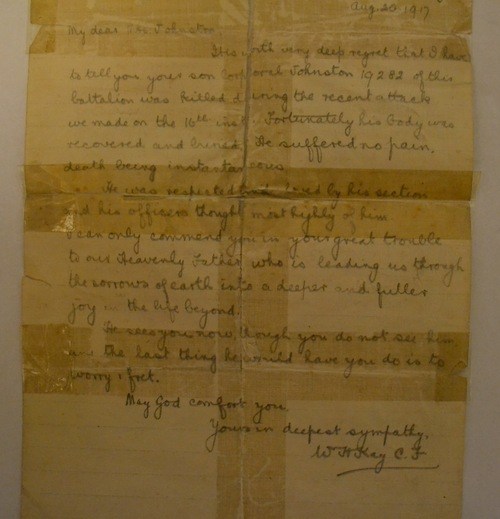 Aug 20 1917
My dear Mrs Johnston
It is with very deep regret that I have
to tell you your son Corporal Johnston 19282 of this
battalion was killed during the recent attack
we made on the 16th inst. Fortunately his body was
recovered and buried. He suffered no pain,
death being instantaneous.
He was respected and loved by his section
and his officers thought most highly of him
I can only commend you in your great trouble
to our Heavenly Father who is leading us through
the sorrows of earth into a deeper and fuller
joy in the life beyond.
He sees you now, though you do not see him
and the last thing he would have you do is to
worry & fret.
May God comfort you.
Yours in deepest sympathy,
W H Kay C. F